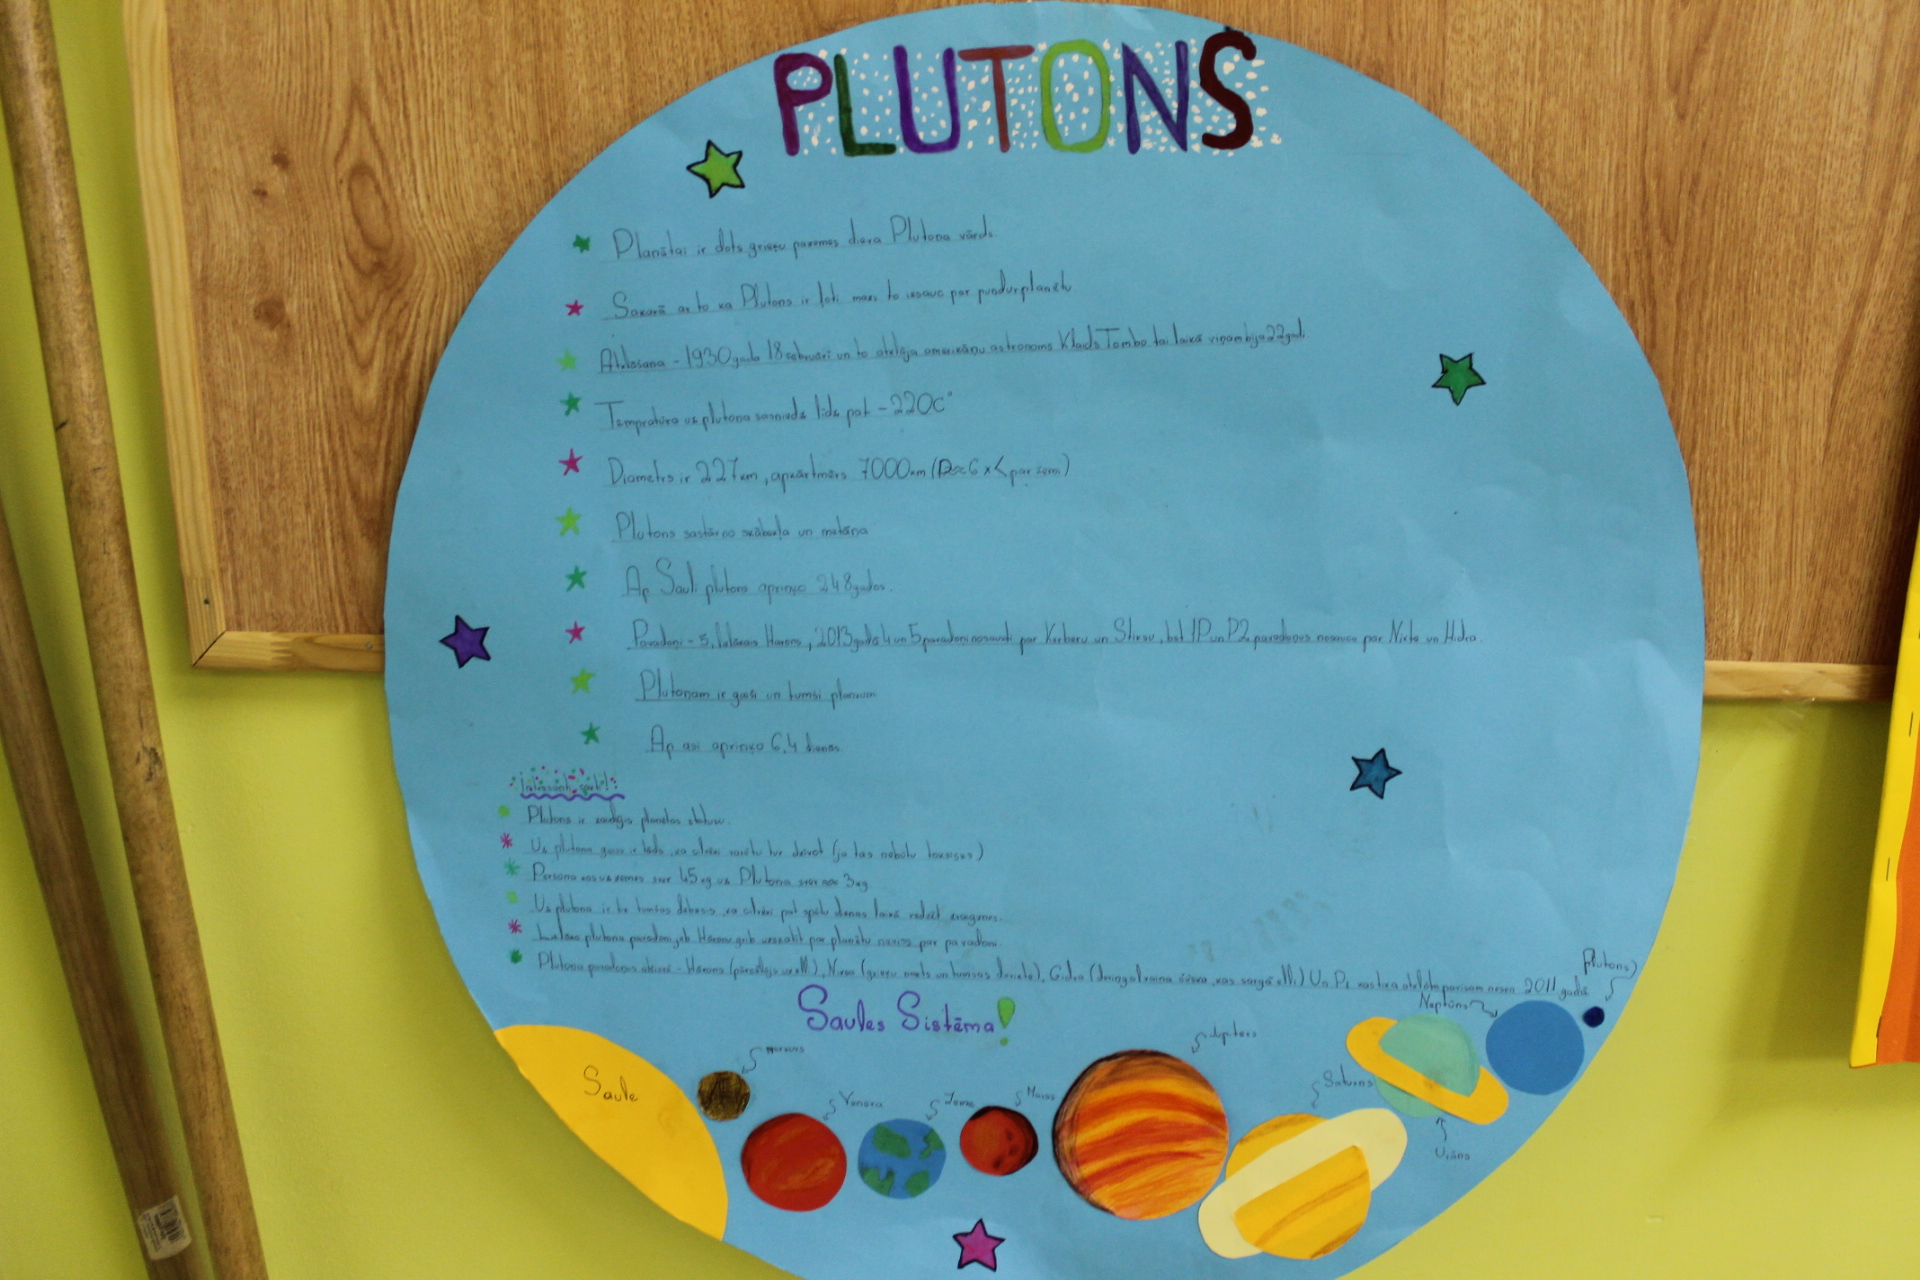 PLUTONS
Planētai ir dots grieķu pazemes dieva Plutona vārds.
Sakarā ar to ka Plutons ir ļoti mazs to sauc par pundurplanētu
Atklāšana - 1930 gada 18 februārī un to atklāja amerikāņu astronoms Klaids Tombo tai laikā viņam bija 22 gadi.
Temperatūra uz plutona sasniedz līdz pat -220C°
Diametrs ir 227km, apkārtmērs 7000km ( 6 x < par zemi)
Plutons sastāv no skābekļa un metāna
Ap Sauli plutons apriņķo 248 gados.
Pavadoņi - 5, lielākais Hārons, 2013 gadā 4 un 5 pavadoni nosauca par Kerberu un Stiksu, bet 1P un P2 pavadoņus nosauca par Nikto un Hidra.
Plutonam ir gaiši un tumši plankumi
Ap asi apriņķo 6,4 dienas
Interesanti fakti!
Plutons ir zaudējis planētas statusu.
Uz plutona gaiss ir tāds, ka cilvēki varētu tur dzīvot (ja tas nebūtu toksisks)
Persona kas uz zemes sver 45kg uz Plutona sver nav 3kg
Uz plutona ir tik tumšas debesis, ka cilvēki pat spētu dienas laikā redzēt zvaigznes.
Lielāko plutona pavadoni jeb Hāronu grib uzskatīt par planētu nevis par pavadoni.
Plutona pavadoņus - Hārons (pārcēlājs uz elli), Nikta (grieķu nakts un tumsas dieviete), Gidra (deviņgalvaina čūska, kas sargā elli) Un P4 kas tika atklāts pavisam nesen 2011 gadā
Saules Sistēma!
Plutons)
Neptūns
Jupiters
Merkurs
Saule
Saturns
Venera
Zeme
Marss
Urāns